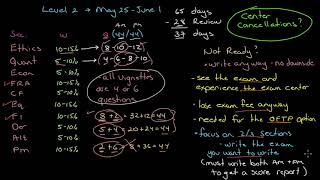 Level 2 → May 25 - June 1
65 days
- 28 Review
37 days
Center
Cancellations?
Sec W Am Pm
(44/44)
Ethics 10-15% 8-10-12
Quant 5-10% 4-6-8-10
Econ 5-10%
FRA 10-15%
CF 5-10%
Eq 10-15%
Fi 10-15%
D 5-10%
Ai 5-10%
Pm 10-15%
all vignettes
are 4 or 6
questions
8 + 2
12 = 44
5 + 4 20 + 24 = 44
2 + 6 8 + 36 = 44
Not Ready?
- write any way - no downside
- see the exam and
experience the exam center
- lose exam fee anyway
- needed for the OFTP option
- focus on 2/3 sections
- write the exam
you want to write
(must write both Am + Pm
to get a score report)